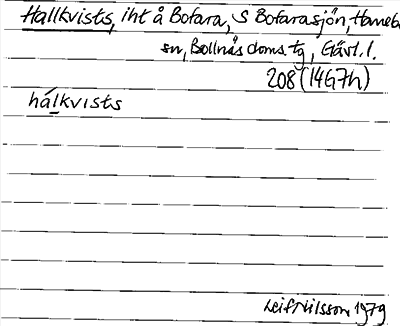 Hallkvists, iht å Bofara, S Bofarasjön, Haneb
sn, Bollnäs doms. tg, Gävl. l.
208 (14G7h)
hálkvists
Leif Nilsson 1979